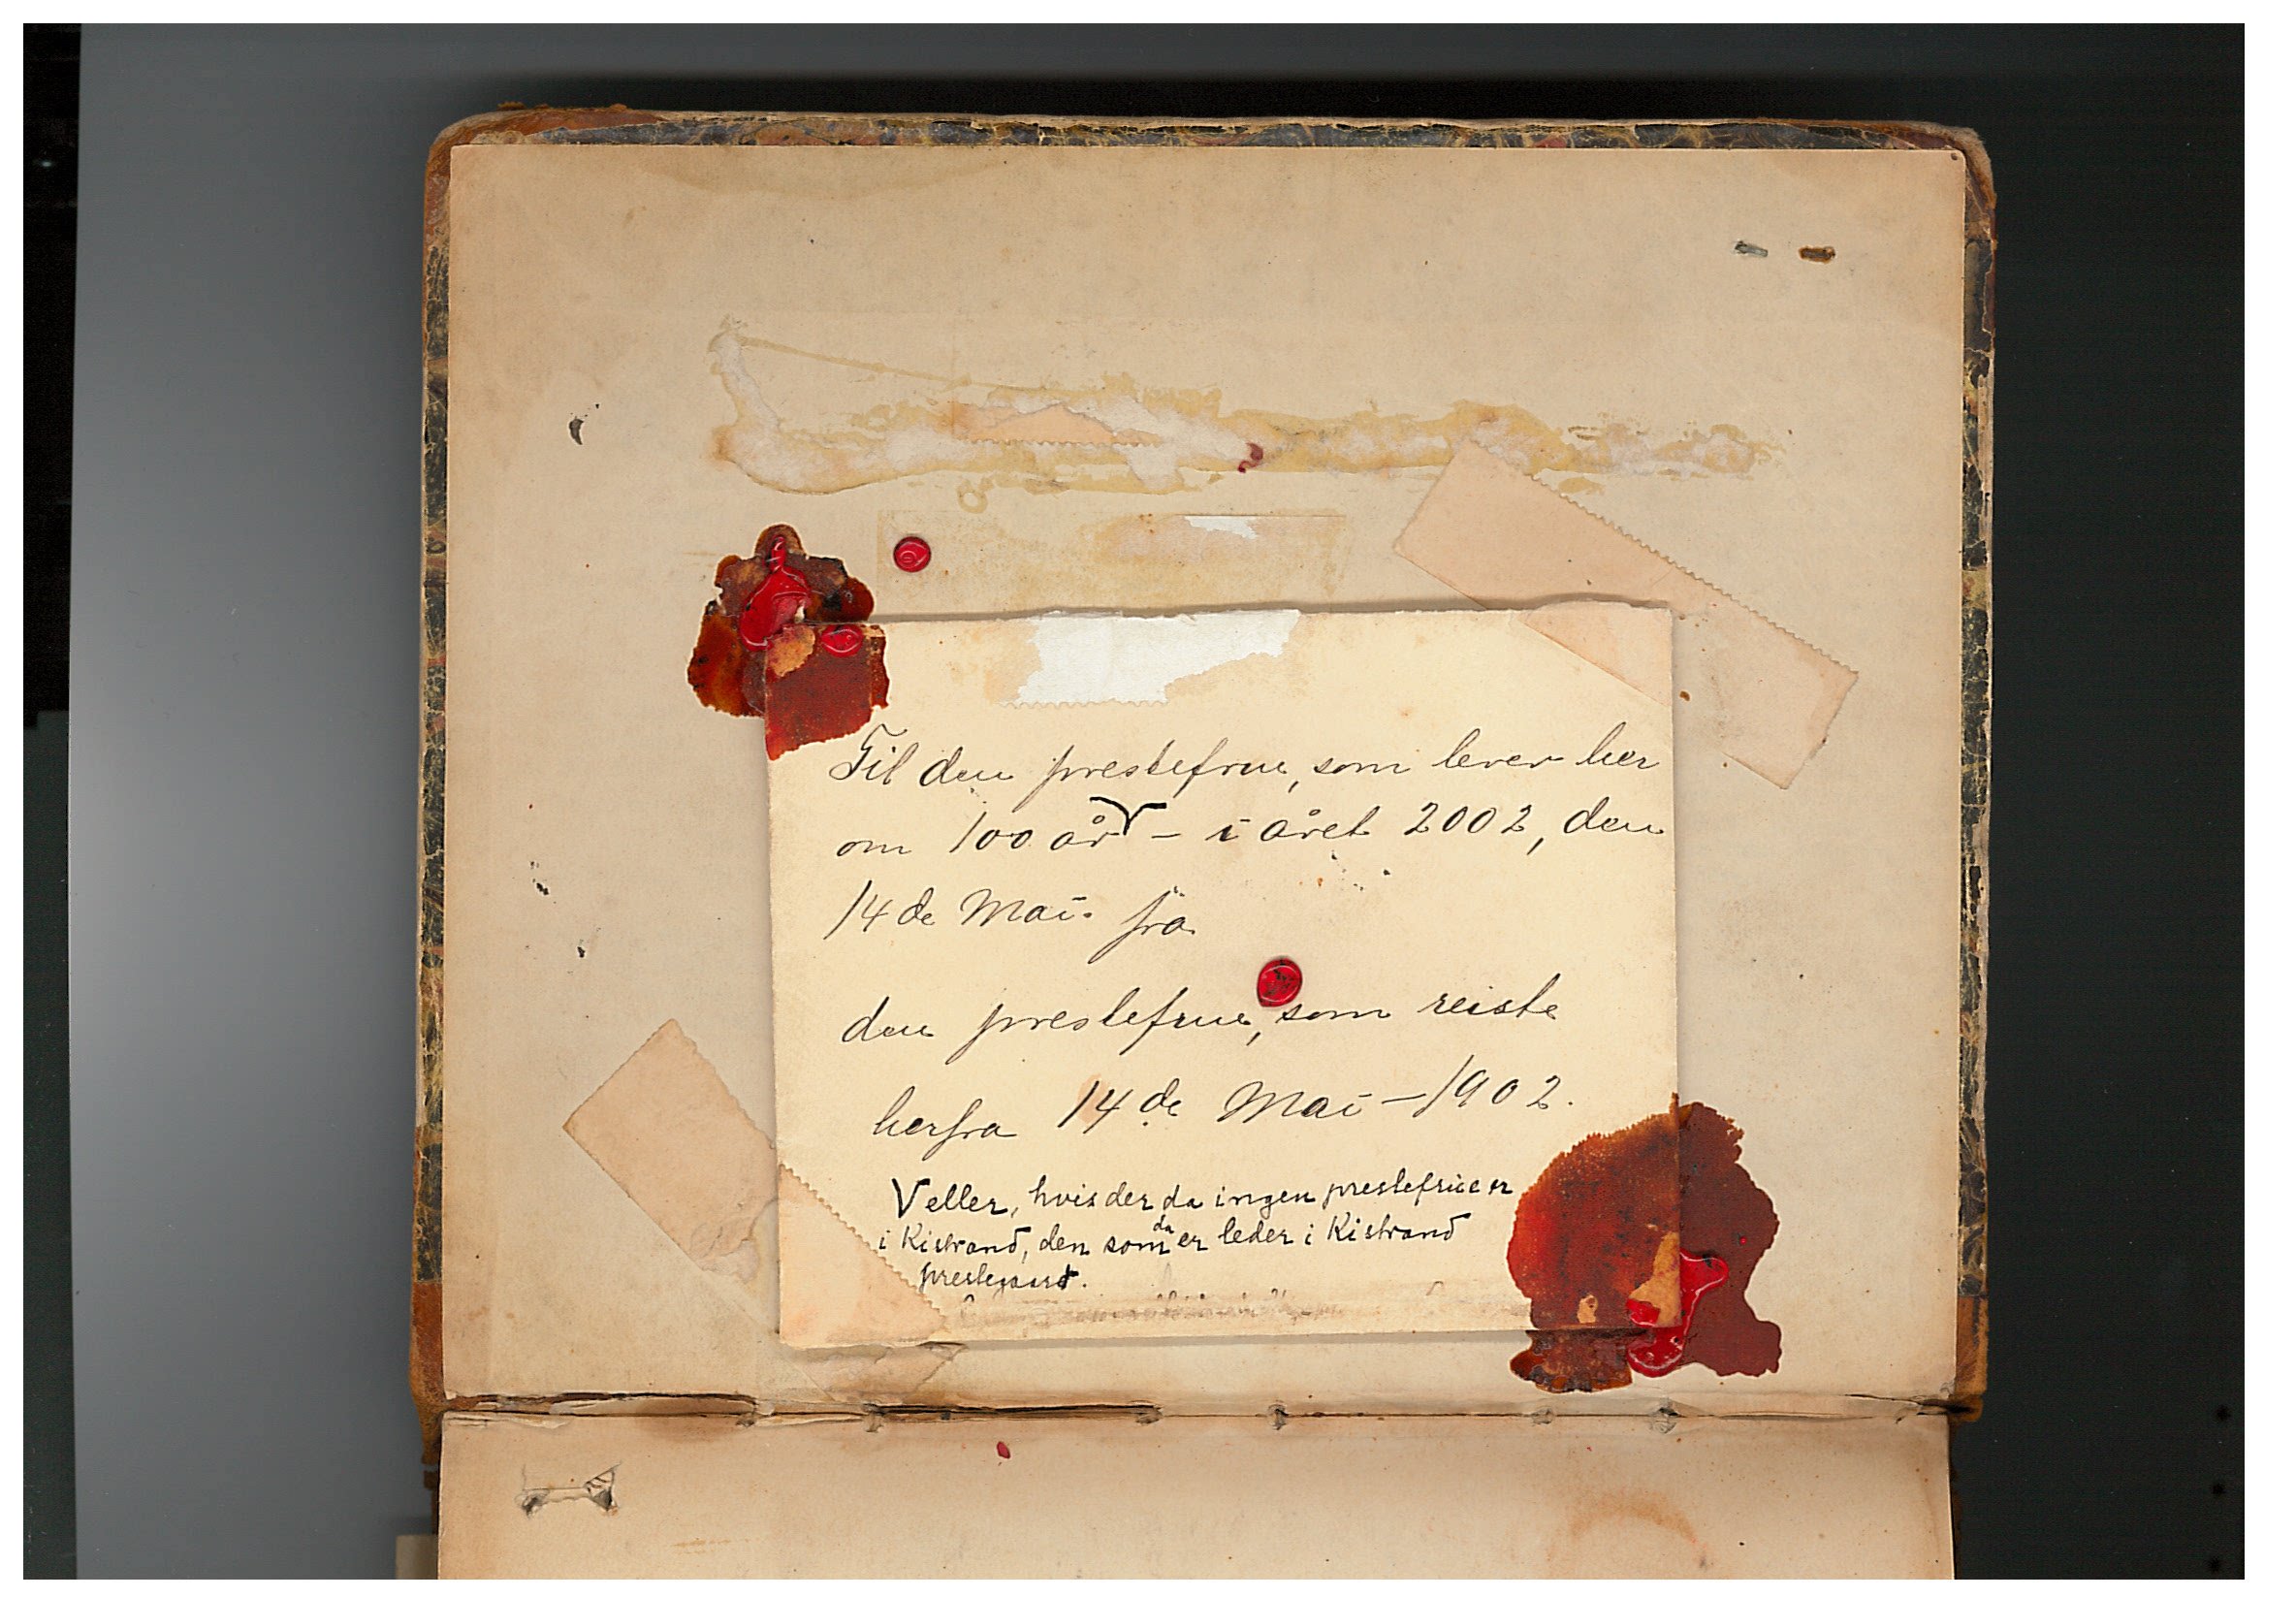 Til den prestefrue, som lever her
om 100 år √ – i året 2002, den
14 de Mai. fra
den prestefrue, som reiste
herfra 14 de Mai – 1902.
√ eller, hvis der da ingen prestefrue er
i Kistrand, den som da er leder i Kistrand
prestegaard.